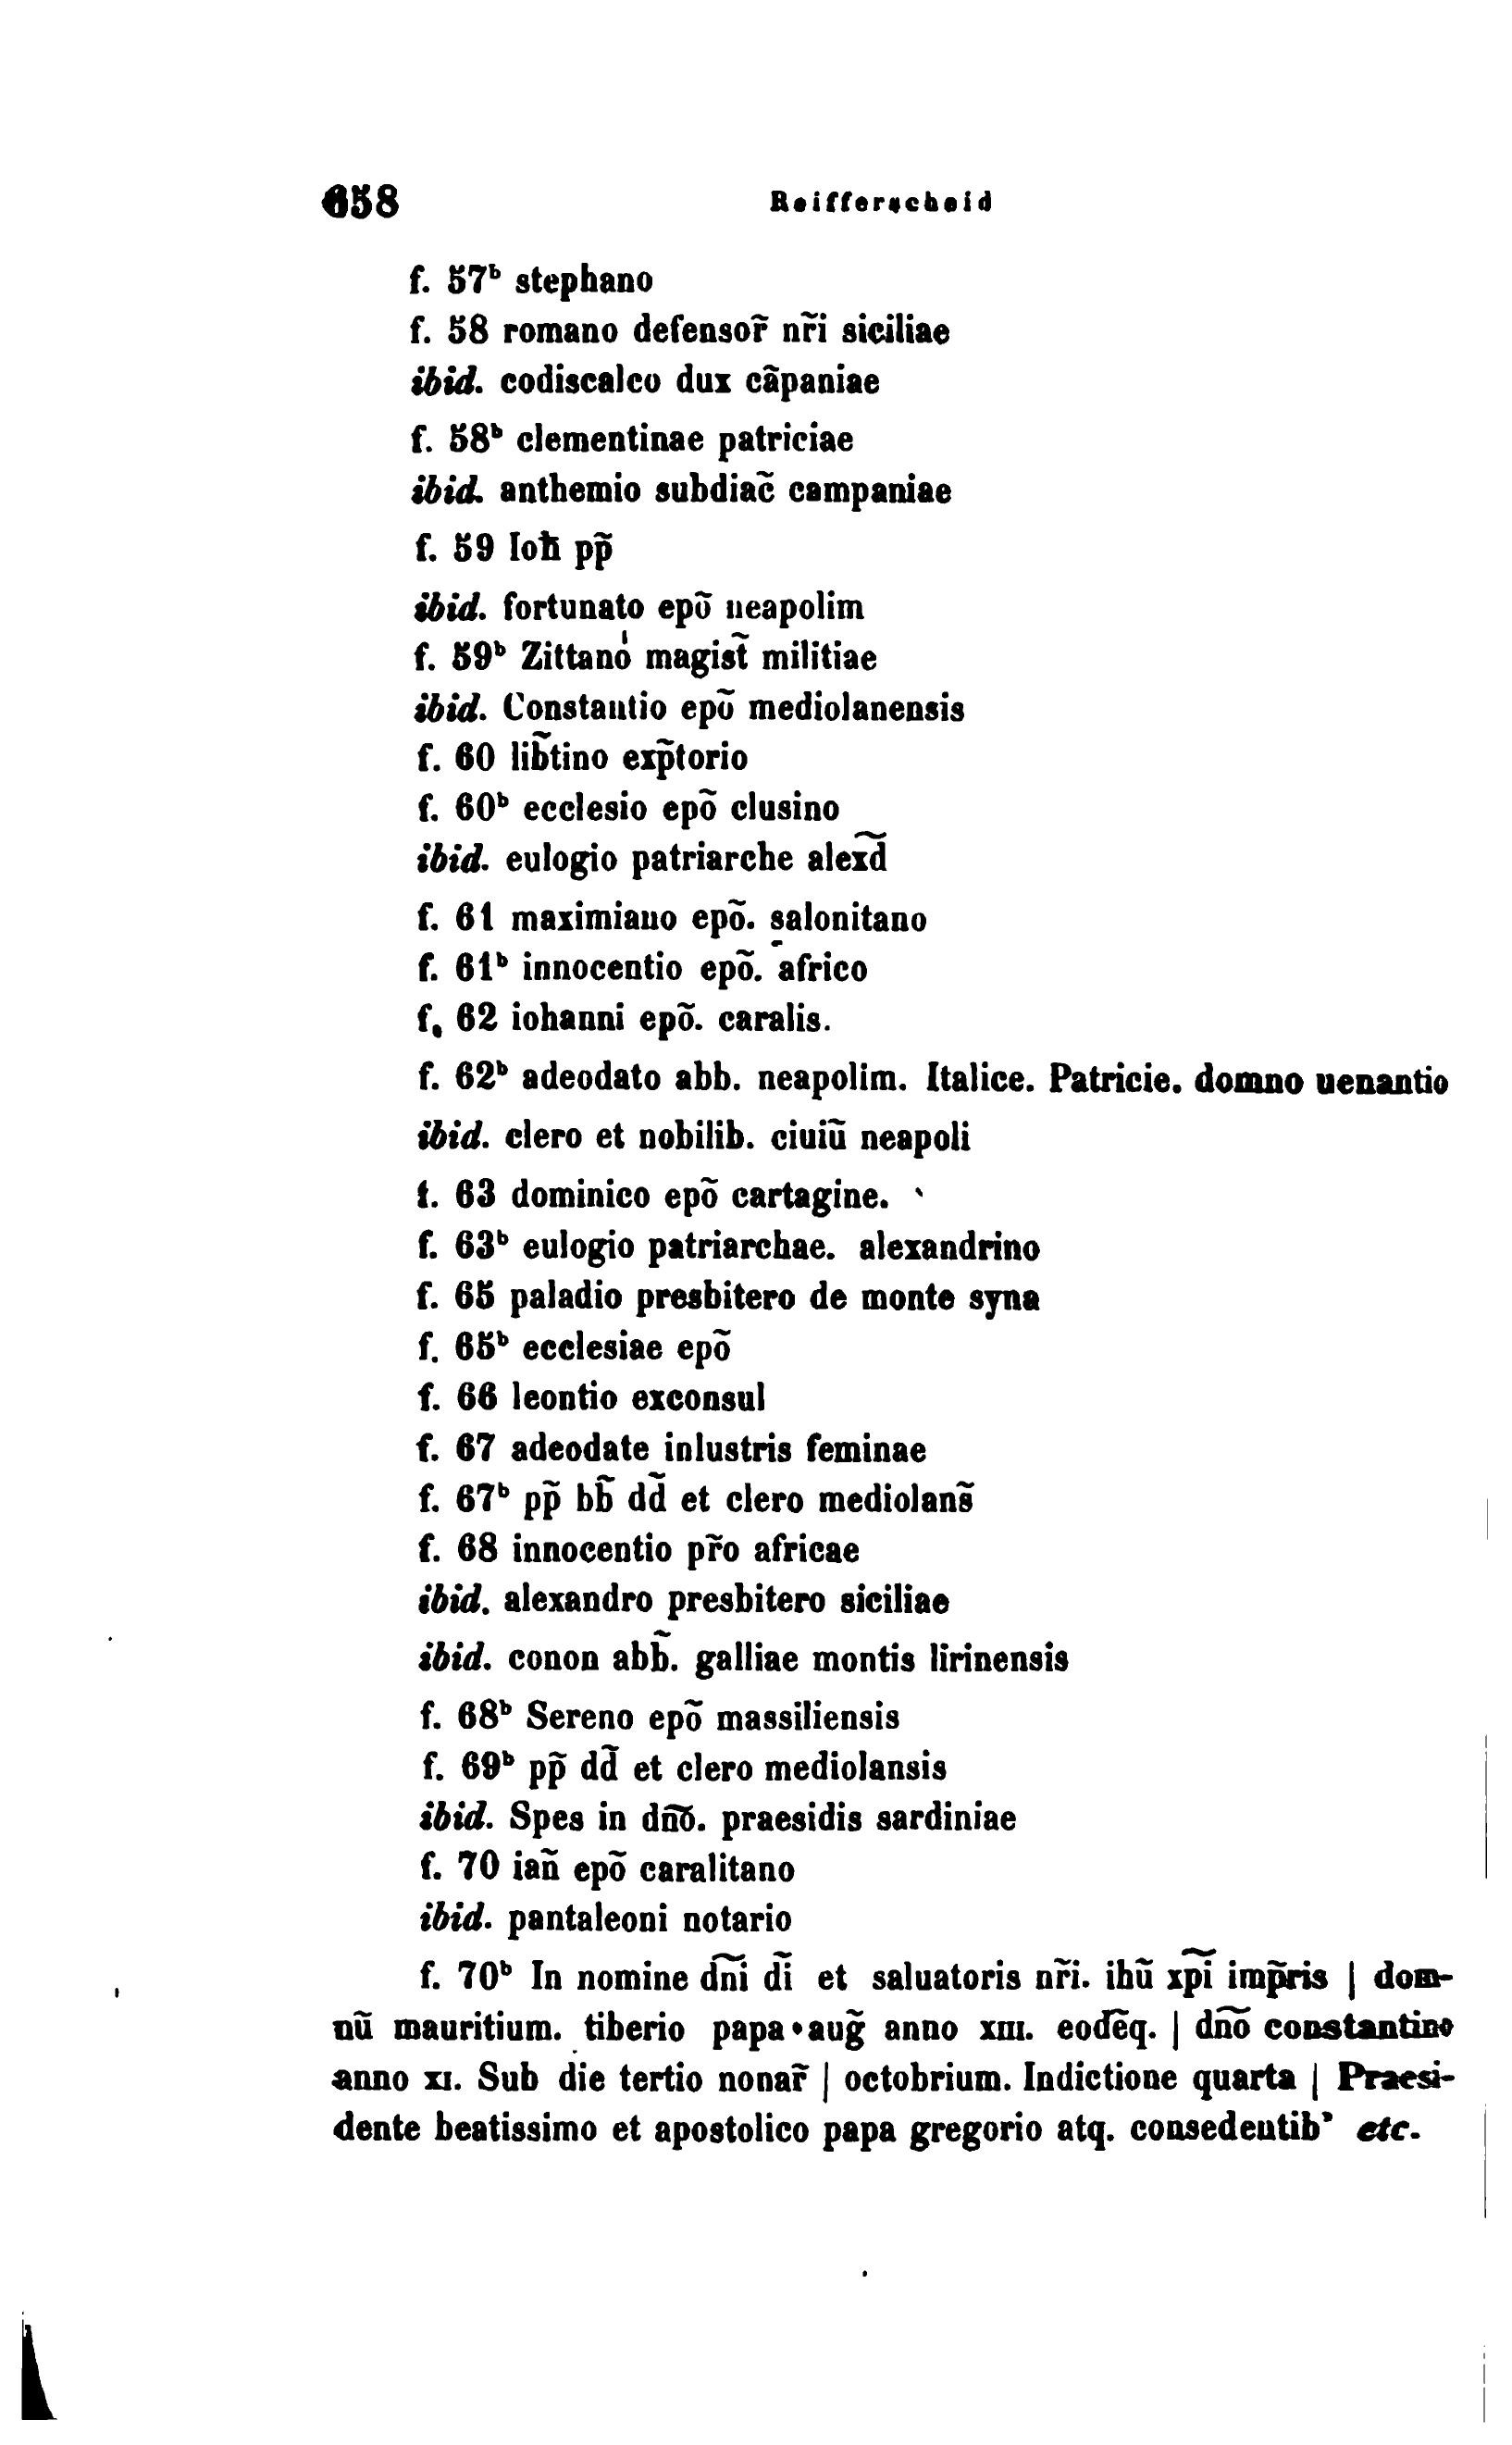 658 Reifferscheid
f. 57ᵇ stephano
f. 58 romano defensor̃ nr̃i siciliae
ibid. codiscalco dux cãpaniae
f. 58ᵇ clementinae patriciae
ibid. anthemio subdiac̃ campaniae
f. 59 Ioħ pp̃
ibid. fortunato epõ neapolim
f. 59ᵇ Zittano̍ magist̃ militiae
ibid. Constantio epõ mediolanensis
f. 60 lib̃tino exp̃torio
f. 60ᵇ ecclesio epõ clusino
ibid. eulogio patriarche alex͠d
f. 61 maximiano epõ. salonitano
f. 61ᵇ innocentio epõ. africo
f. 62 iohanni epõ. caralis.
f. 62ᵇ adeodato abb. neapolim. Italice. Patricie. domno uenantio
ibid. clero et nobilib. ciuiũ neapoli
f. 63 dominico epõ cartagine.
f. 63ᵇ eulogio patriarchae. alexandrino
f. 65 paladio presbitero de monte syna
f. 65ᵇ ecclesiae epõ
f. 66 leontio exconsul
f. 67 adeodate inlustris feminae
f. 67ᵇ pp̃ bb̃ dd̃ et clero mediolans̃
f. 68 innocentio pr̃o africae
ibid. alexandro presbitero siciliae
ibid. conon abb̃. galliae montis lirinensis
f. 68ᵇ Sereno epõ massiliensis
f. 69ᵇ pp̃ dd̃ et clero mediolansis
ibid. Spes in dn͠o. praesidis sardiniae
f. 70 iañ epõ caralitano
ibid. pantaleoni notario
f. 70ᵇ In nomine dn͠i dĩ et saluatoris nr̃i. ihũ xp͠i imp̃ris | dom-
nũ mauritium. tiberio papa • aug̃ anno xiii. eod͠eq. | dn͠o constantino
anno xi. Sub die tertio nonar̃ | octobrium. Indictione quarta | Praesi-
dente beatissimo et apostolico papa gregorio atq. consedentib’ etc.